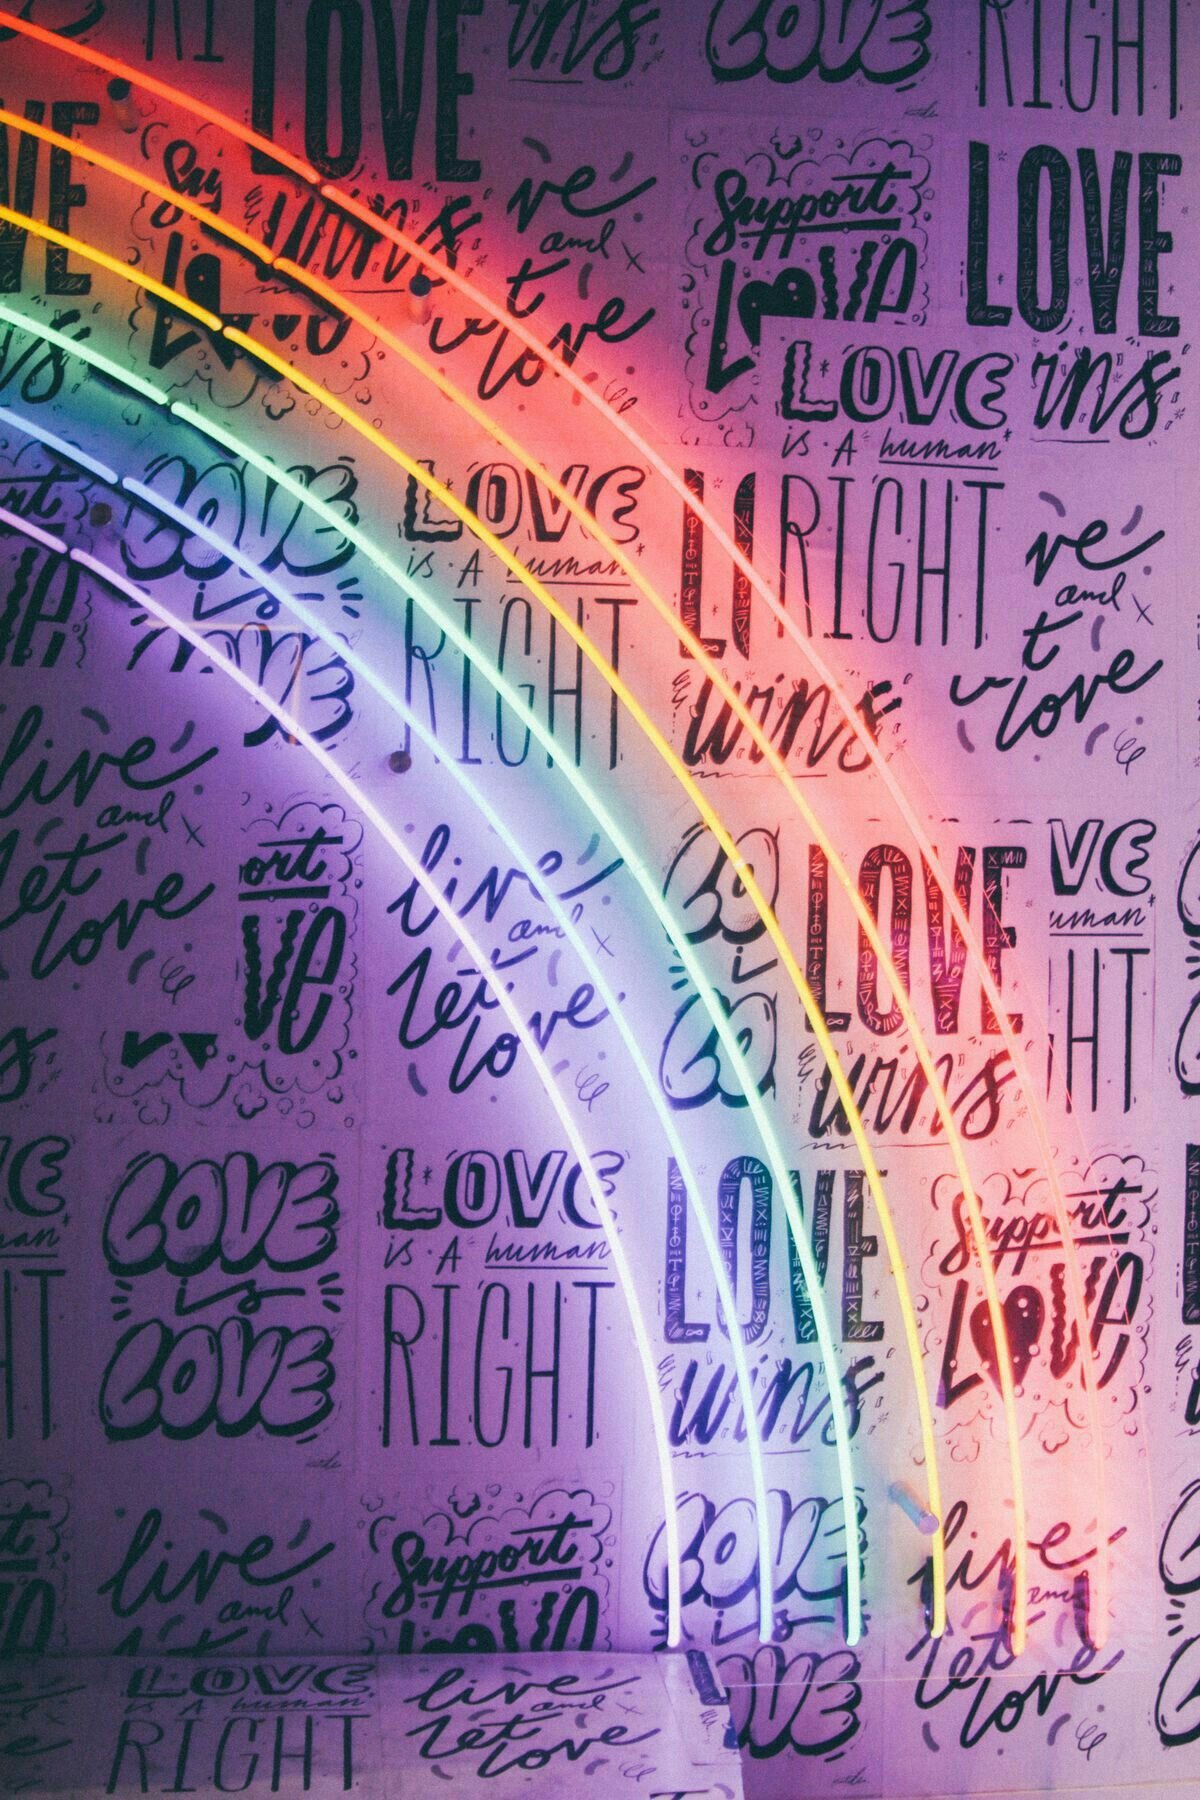 LOVE
ins
LOVE
RIGHT
LOVE
wins
ve
and
t
love
Support
LOVE
LOVE
ins
LOVE
is A human
LOVE
is A human
RIGHT
RIGHT
wins
ve
and
t
love
LOVE
is
live
and
let
love
ort
ve
live
and
let
love
LOVE
wins
VE
uman
HT
LOVE
is
LOVE
LOVE
is A human
RIGHT
LOVE
wins
Support
LOVE
live
and
let
Support
LOVE
LOVE
is
LOVE
live
and
let
love
LOVE
is A human
RIGHT
live
and
let
love